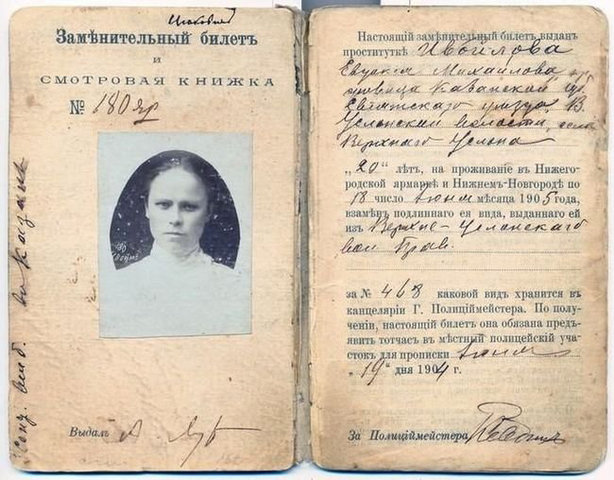 Замѣнительный билетъ
и
СМОТРОВАЯ КНИЖКА
№ 180 яр
Выдалъ
Настоящій замѣнительный билетъ выданъ
проституткѣ Ивойлова
Евгенія Михайлова
Казанской губ
уѣзда, В.
Услонской волости, села
Верхняго Услона
„20“ лѣтъ, на проживаніе въ Нижего-
родской ярмаркѣ и Нижнемъ-Новгородѣ по
18 число Іюня мѣсяца 1905 года,
взамѣнъ подлиннаго ея вида, выданнаго ей
изъ Верхне-Услонскаго
вол Прав.
за № 463 каковой видъ хранится въ
канцеляріи Г. Полиціймейстера. По полу-
ченіи, настоящій билетъ она обязана предъ-
явить тотчасъ въ мѣстный полицейскій уча-
стокъ для прописки Іюня
„19“ дня 1904 г.
За Полиціймейстера